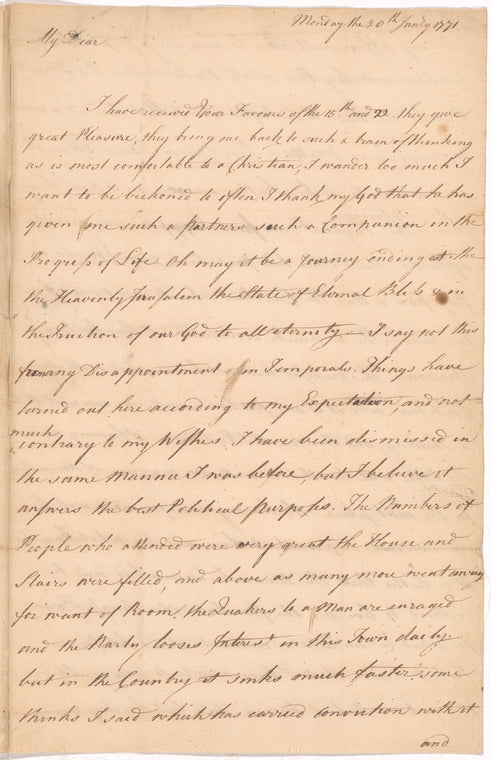 Monday the 28th Janry 1771
My Dear
I have received Your Favours of the 15th and 22 they give
great Pleasure, they bring me back to such a train of thinking
as is most comfortable to a Christian, I wander too much I
want to be beckoned to often I thank my God that he has
given me such a partner such a Companion in the
Progress of Life. Oh may it be a Journey ending at the
the Heavenly Jerusalem the State of Eternal Bliss & in
the Fruition of our God to all eternity — I say not this
from any Disappointment in Temporals. Things have
turned out here according to my Expectation, and not
much
contrary to my Wishes. I have been dismissed in
the same manner I was before but I believe it
answers the best Political purposes. The Numbers of
People who attended were very great the House and
Stairs were filled, and above as many more went away
for want of Room. the Quakers to a Man are enraged
and the Party looses Interest in this Town daily
but in the Country it sinks much faster. some
thinks I said which has carried conviction with it
and